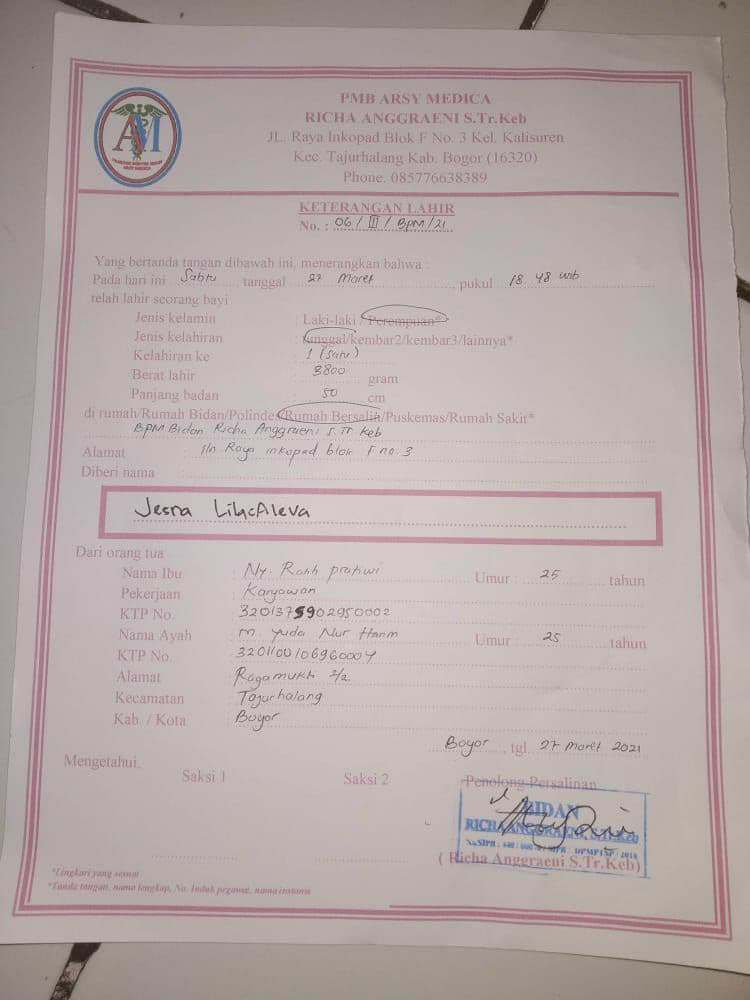 PMB ARSY MEDICA
RICHA ANGGRAENI S.Tr.Keb
JL. Raya Inkopad Blok F No. 3 Kel. Kalisuren
Kec. Tajurhalang Kab. Bogor (16320)
Phone. 085776638389
AM
ARSY MEDICA
KETERANGAN LAHIR
No. : 06 / III / BPM / 21
Yang bertanda tangan dibawah ini, menerangkan bahwa :
Pada hari ini Sabtu tanggal 27 Maret, pukul 18.48 wib
telah lahir seorang bayi
Jenis kelamin : Laki-laki / Perempuan*
Jenis kelahiran : tunggal/kembar2/kembar3/lainnya*
Kelahiran ke : 1 (satu)
Berat lahir : 3800 gram
Panjang badan : 50 cm
di rumah/Rumah Bidan/Polindes/Rumah Bersalin/Puskemas/Rumah Sakit*
BPM Bidan Richa Anggraeni S.Tr.Keb
Alamat : Jln Raya inkopad blok F no. 3
Diberi nama :
Jesna Lilacfileva
Dari orang tua
Nama Ibu : Ny. Ratih pratiwi Umur : 25 tahun
Pekerjaan : Karyawan
KTP No. : 3201375902950002
Nama Ayah : m. yuda Nur Hanm Umur : 25 tahun
KTP No. : 3201100106960004
Alamat : Ragamukti 2/2
Kecamatan : Tajurhalang
Kab. / Kota : Bogor
Bogor, tgl. 27 maret 2021
Mengetahui,
Saksi 1 Saksi 2 Penolong Persalinan
BIDAN
RICHA ANGGRAENI, S.Tr.Keb
( Richa Anggraeni S.Tr.Keb)
*Lingkari yang sesuai
*Tanda tangan, nama lengkap, No. Induk pegawai, nama instansi